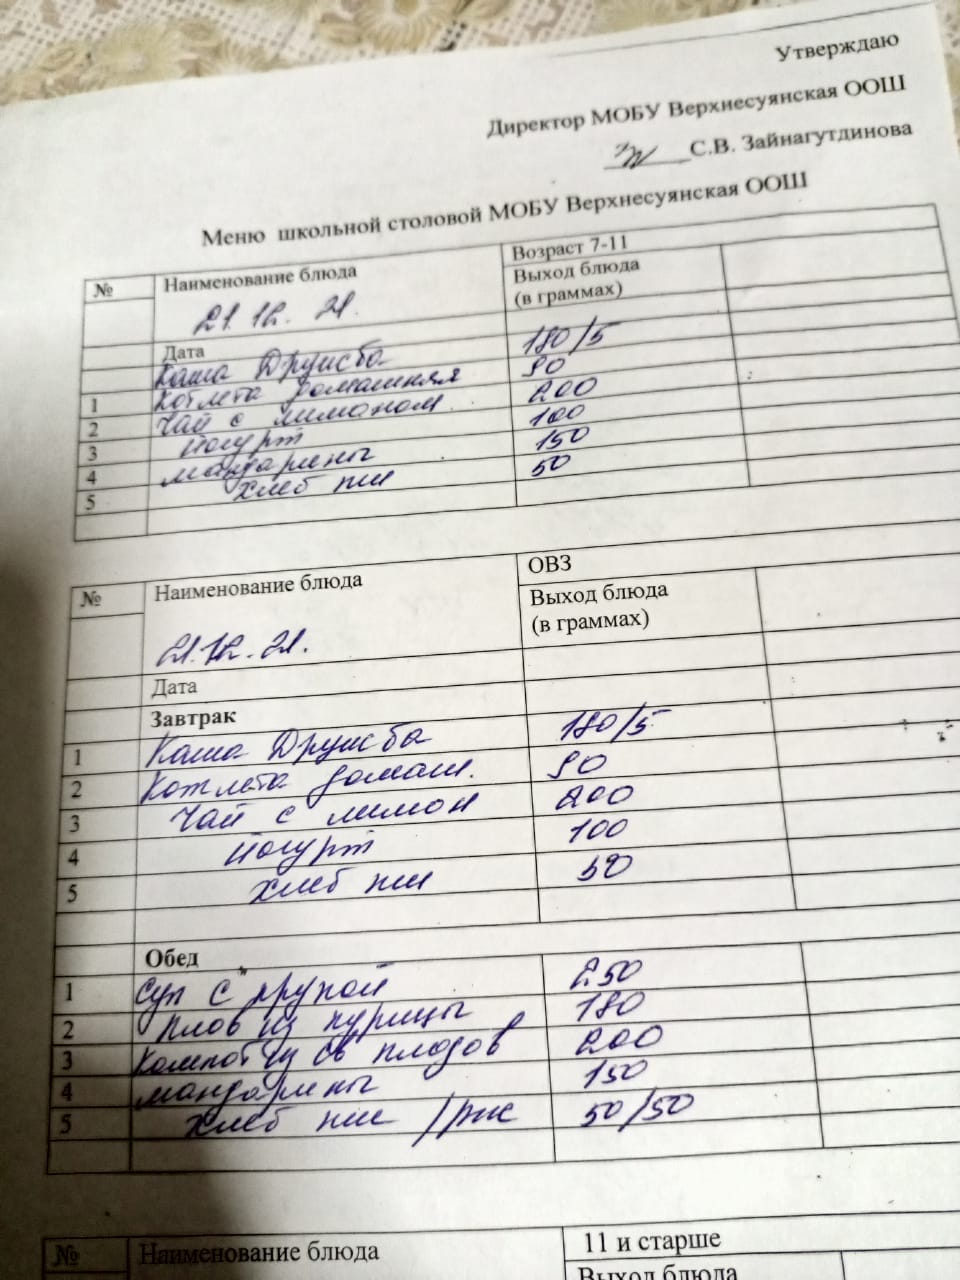 Утверждаю
Директор МОБУ Верхнесуянская ООШ
С.В. Зайнагутдинова
Меню школьной столовой МОБУ Верхнесуянская ООШ
№ Наименование блюда Возраст 7-11
Выход блюда
(в граммах)
21.12.21.
Дата
Каша Дружба 180/5
1 Котлета домашняя 90
2 Чай с лимоном 200
3 Йогурт 100
4 мандарины 150
5 хлеб пш 50
№ Наименование блюда ОВЗ
Выход блюда
(в граммах)
21.12.21.
Дата
Завтрак
1 Каша Дружба 180/5
2 Котлета домаш. 90
3 Чай с лимон 200
4 Йогурт 100
5 хлеб пш 50
Обед
1 Суп с крупой 250
2 Плов из курицы 180
3 Компот из св плодов 200
4 мандарины 150
5 хлеб пш /рж 50/50
№ Наименование блюда 11 и старше
Выход блюда